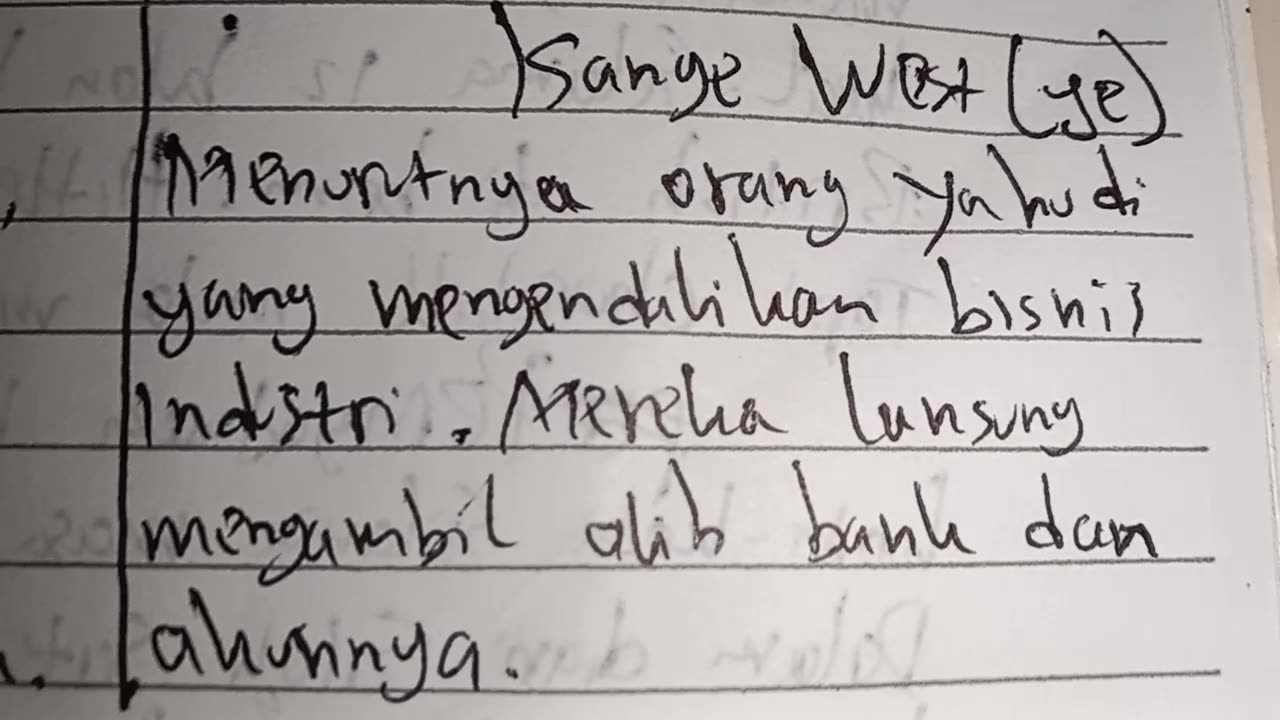 Kanye West (ye)
Menurutnya orang yahudi
yang mengendalikan bisnis
Industri. Mereka lansung
mengambil alih bank dan
akunnya.